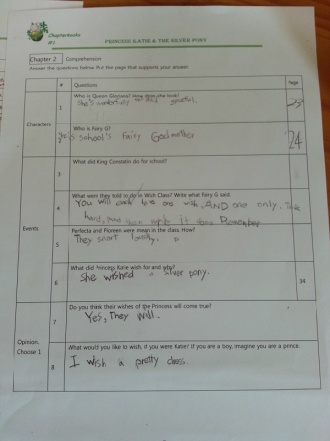 Chapterbooks
PRINCESS KATIE & THE SILVER PONY
Chapter 2 Comprehension
Answer the questions below. Put the page that supports your answer.
# Questions Page
Characters
1 Who is Queen Gloriana? How does she look?
She's wonderfully and graceful.
2 Who is Fairy G?
She's school's Fairy Godmother
24
3 What did King Constatin do for school?
Events
4 What were they told to do in Wish Class? Write what Fairy G said.
You will each have one wish, AND one only. Think
hard, and Remember
5 Perfecta and Floreen were mean in the class. How?
They snort loudly.
6 What did Princess Katie wish for and why?
She wished a silver pony.
34
Opinion.
Choose 1
7 Do you think their wishes of the Princess will come true?
Yes, They will.
8 What would you like to wish, if you were Katie? If you are a boy, imagine you are a prince.
I wish a pretty dress.